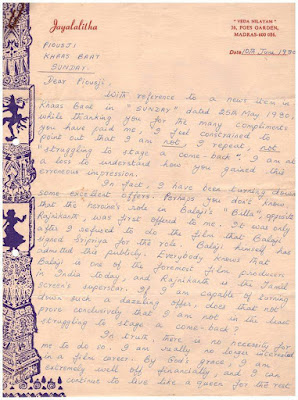 Jayalalitha
"VEDA NILAYAM"
36, POES GARDEN,
MADRAS-600 086.
Date 10th June 1980
PIOUSJI
KHAAS BAAT
SUNDAY.
Dear Piousji,
With reference to a news item in
Khaas Baat in "SUNDAY" dated 25th May 1980,
while thanking you for the many compliments
you have paid me, I feel constrained to
point out that I am not, I repeat, not
"struggling to stage a come-back". I am at
a loss to understand how you gained this
erroneous impression.
In fact, I have been turning down
some excellent offers. Perhaps you don't know
that the heroine's role in Balaji's "Billa", opposite
Rajnikant, was first offered to me. It was only
after I refused to do the film that Balaji
signed Sripriya for the role. Balaji himself has
admitted this publicly. Everybody knows that
Balaji is one of the foremost film producers
in India today and Rajnikant is the Tamil
screen's superstar. If I am capable of turning
down such a dazzling offer, does that not
prove conclusively that I am not in the least
struggling to stage a come-back?
In truth, there is no necessity for
me to do so. I am really no longer interested
in a film career. By God's grace, I am
extremely well off financially and I can
continue to live like a queen for the rest